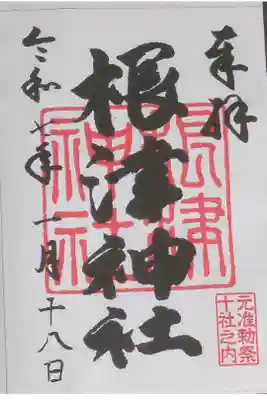 奉拝
根津神社
令和七年一月十八日
根津神社
元准勅祭
十社之内